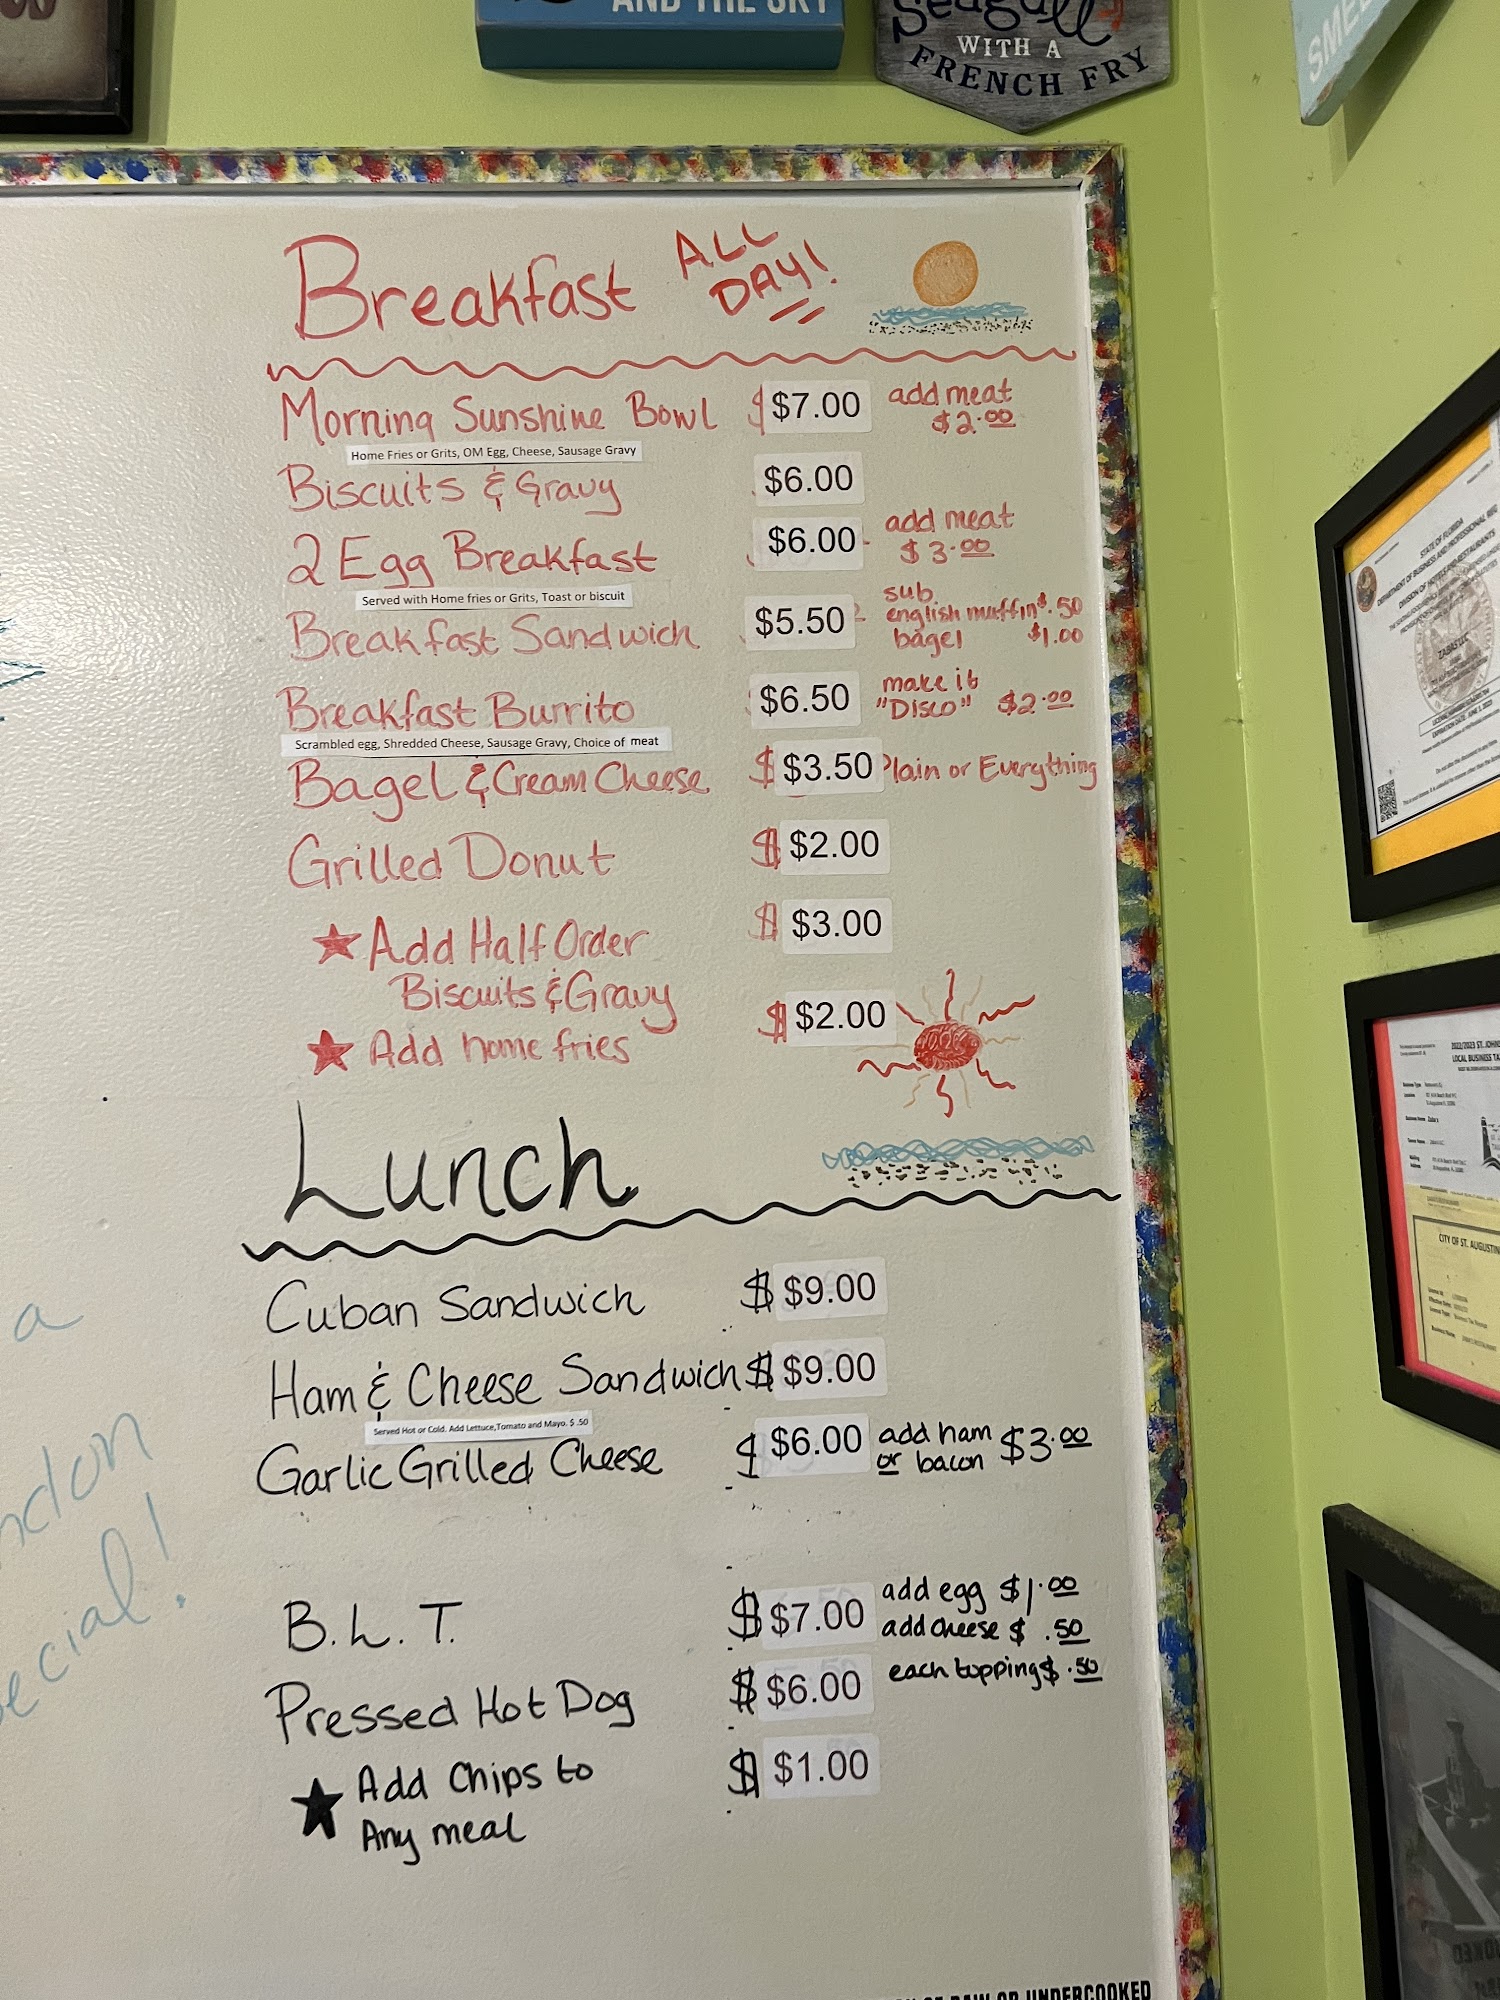 AND THE SKY
Seagull
WITH A
FRENCH FRY
SME
Breakfast ALL DAY!
Morning Sunshine Bowl $7.00 add meat $2.00
Home Fries or Grits, OM Egg, Cheese, Sausage Gravy
Biscuits & Gravy $6.00
2 Egg Breakfast $6.00 add meat $3.00
Served with Home fries or Grits, Toast or biscuit
Breakfast Sandwich $5.50 sub. english muffin $.50 bagel $1.00
Breakfast Burrito $6.50 make it "DISCO" $2.00
Scrambled egg, Shredded Cheese, Sausage Gravy, Choice of meat
Bagel & Cream Cheese $3.50 Plain or Everything
Grilled Donut $2.00
Add Half Order $3.00
Biscuits & Gravy
Add home fries $2.00
Lunch
Cuban Sandwich $9.00
Ham & Cheese Sandwich $9.00
Served Hot or Cold. Add Lettuce,Tomato and Mayo. $ .50
Garlic Grilled Cheese $6.00 add ham or bacon $3.00
B.L.T. $7.00 add egg $1.00 add cheese $ .50
Pressed Hot Dog $6.00 each topping $.50
Add Chips to $1.00
Any meal
a
ndon
ecial!
STATE OF FLORIDA
DEPARTMENT OF BUSINESS AND PROFESSIONAL REG
DIVISION OF HOTELS AND RESTAURANTS
ZABAS LLC
2022/2023 ST. JOHNS
LOCAL BUSINESS TA
CITY OF ST. AUGUSTIN
OF RAW OR UNDERCOOKED